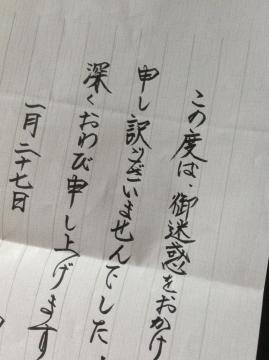 この度は、御迷惑をおかけ
申し訳ございませんでした。
深くおわび申し上げます
一月二十七日